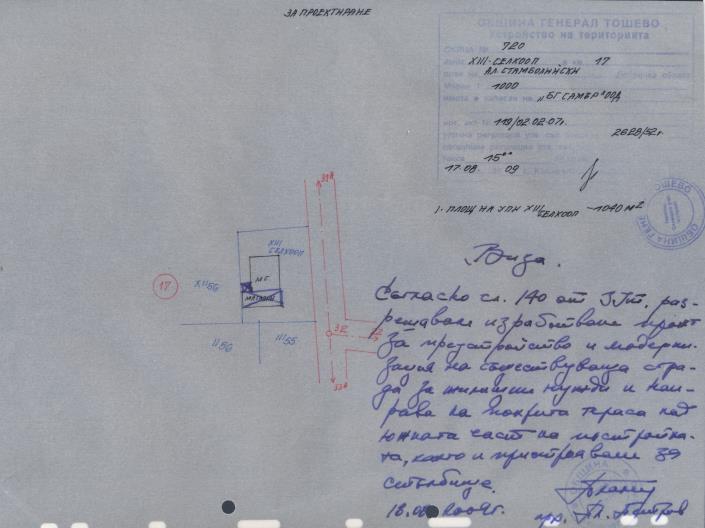 ЗА ПРОЕКТИРАНЕ
ОБЩИНА ГЕНЕРАЛ ТОШЕВО
Устройство на територията
СКИЦА № 720
XIII-СЕЛКООП 17
АЛ. СТАМБОЛИЙСКИ
1000
„БГ САМЕР" ООД
119/02.02.07г.
2628/52г.
15°°
17.08 09
1. ПЛОЩ НА УПИ XIII СЕЛКООП - 1040 м²
ОБЩИНА ГЕНЕ ТОШЕВО
33А
XIII
СЕЛКООП
МС
МАГАЗИН
17
XII56
II56
III55
32
33А
Виза.
Съгласно чл. 140 от ЗУТ, раз-
решавам изработване проект
за преустройство и модерни-
зация на съществуваща сгра-
да за жилищни нужди и нап-
рава на покрита тераса над
южната част на постройка-
та, както и пристрояване за
стълбище.
18.08.2009г.
ОБЩИНА
Пл. Петров